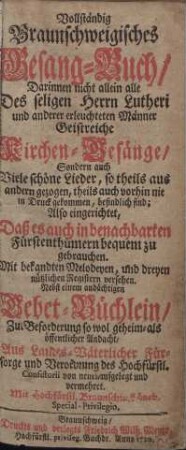 Vollständig
Braunschweigisches
Gesang-Buch/
Darinnen nicht allein alle
Des seligen Herrn Lutheri
und anderer erleuchteten Männer
Geistreiche
Kirchen-Gesänge/
Sondern auch
Viele schöne Lieder, so theils aus
andern gezogen, theils auch vorhin nie
in Druck gekommen, befindlich sind;
Also eingerichtet,
Daß es auch in benachbarten
Fürstenthümern bequem zu
gebrauchen.
Mit bekandten Melodeyen, und dreyen
nützlichen Registern versehen.
Nebst einem andächtigen
Gebet-Büchlein/
Zu Beforderung so wol geheim- als
öffentlicher Andacht/
Aus Landes-Väterlicher Für-
sorge und Verordnung des Hochfürstl.
Consistorii von neuen aufgelegt und
vermehret.
Mit Hochfürstl. Braunschw. Lüneb.
Special-Privilegio.
Braunschweig/
Druckts und verlegts Friedrich Wilh. Meyer
Hochfürstl. privileg. Buchdr. Anno